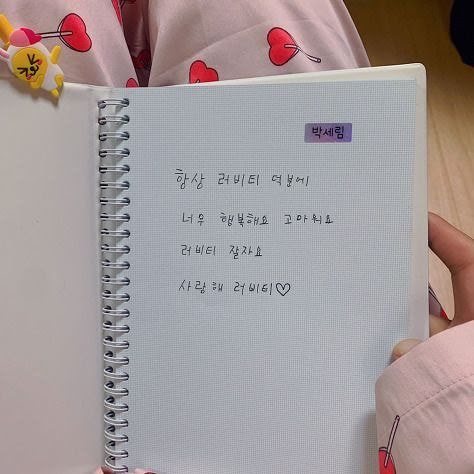 박세림
항상 러비티 덕분에
너무 행복해요 고마워요
러비티 잘자요
사랑해 러비티♡